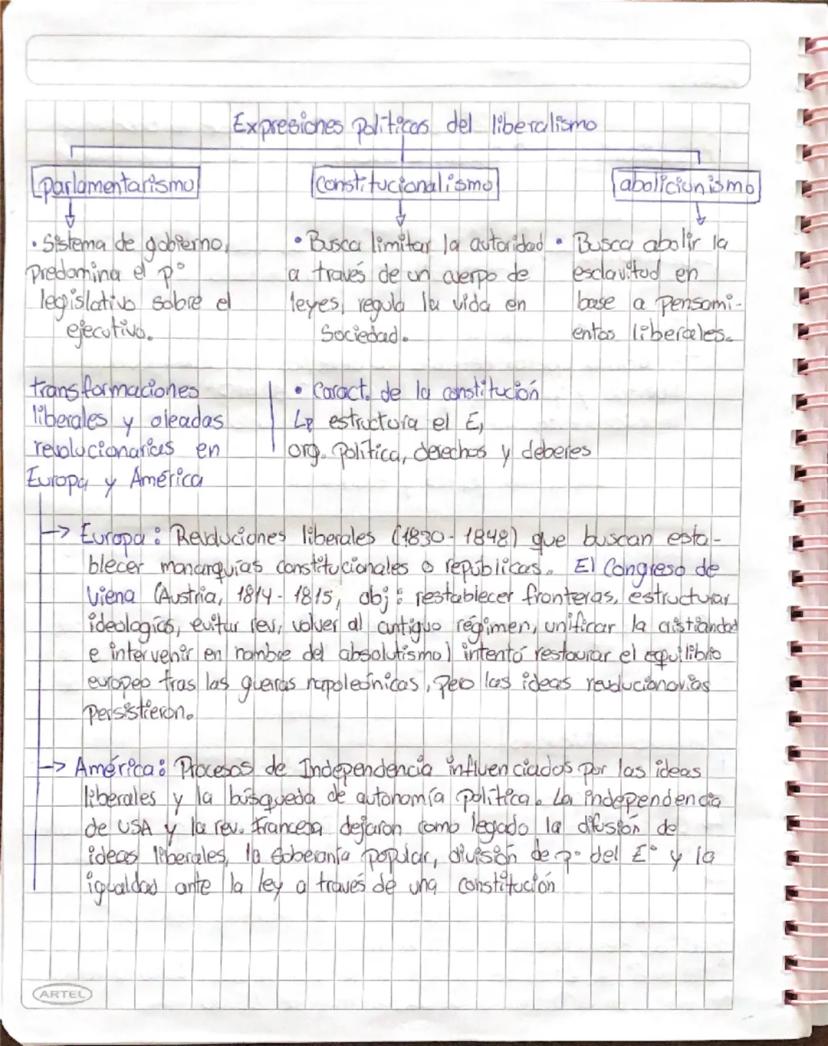 Expresiones políticas del liberalismo
parlamentarismo
constitucionalismo
abolicionismo
• Sistema de gobierno,
predomina el p°
legislativo sobre el
ejecutivo.
• Busca limitar la autoridad
a través de un cuerpo de
leyes, regula la vida en
sociedad.
• Busca abolir la
esclavitud en
base a pensami-
entos liberales.
transformaciones
liberales y oleadas
revolucionarias en
Europa y América
• Caract. de la constitución
↳ estructura el E,
org. política, derechos y deberes
→ Europa: Revoluciones liberales (1830-1848) que buscan esta-
blecer monarquías constitucionales o repúblicas. El Congreso de
Viena (Austria, 1814-1815, obj: restablecer fronteras, estructurar
ideologías, evitar rev, volver al antiguo régimen, unificar la cristiandad
e intervenir en nombre del absolutismo) intentó restaurar el equilibrio
europeo tras las guerras napoleónicas, pero las ideas revolucionarias
persistieron.
→ América: Procesos de Independencia influenciados por las ideas
liberales y la búsqueda de autonomía política. La independencia
de USA y la rev. francesa dejaron como legado la difusión de
ideas liberales, la soberanía popular, división de p° del E° y la
igualdad ante la ley a través de una constitución
ARTEL